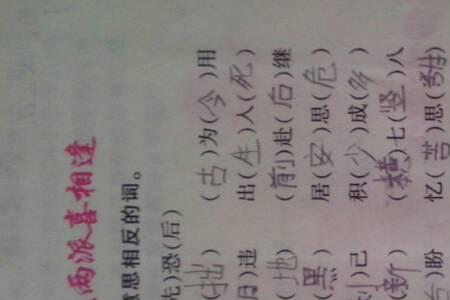 两派喜相逢
思相反的词。
)恐(后)
(拙) (古)为(今)用
)违 出(生)入(死)
(地) (前)赴(后)继
(黑) 居(安)思(危)
)己 积(少)成(多)
(新) (横)七(竖)八
)盼 忆(苦)思(甜)